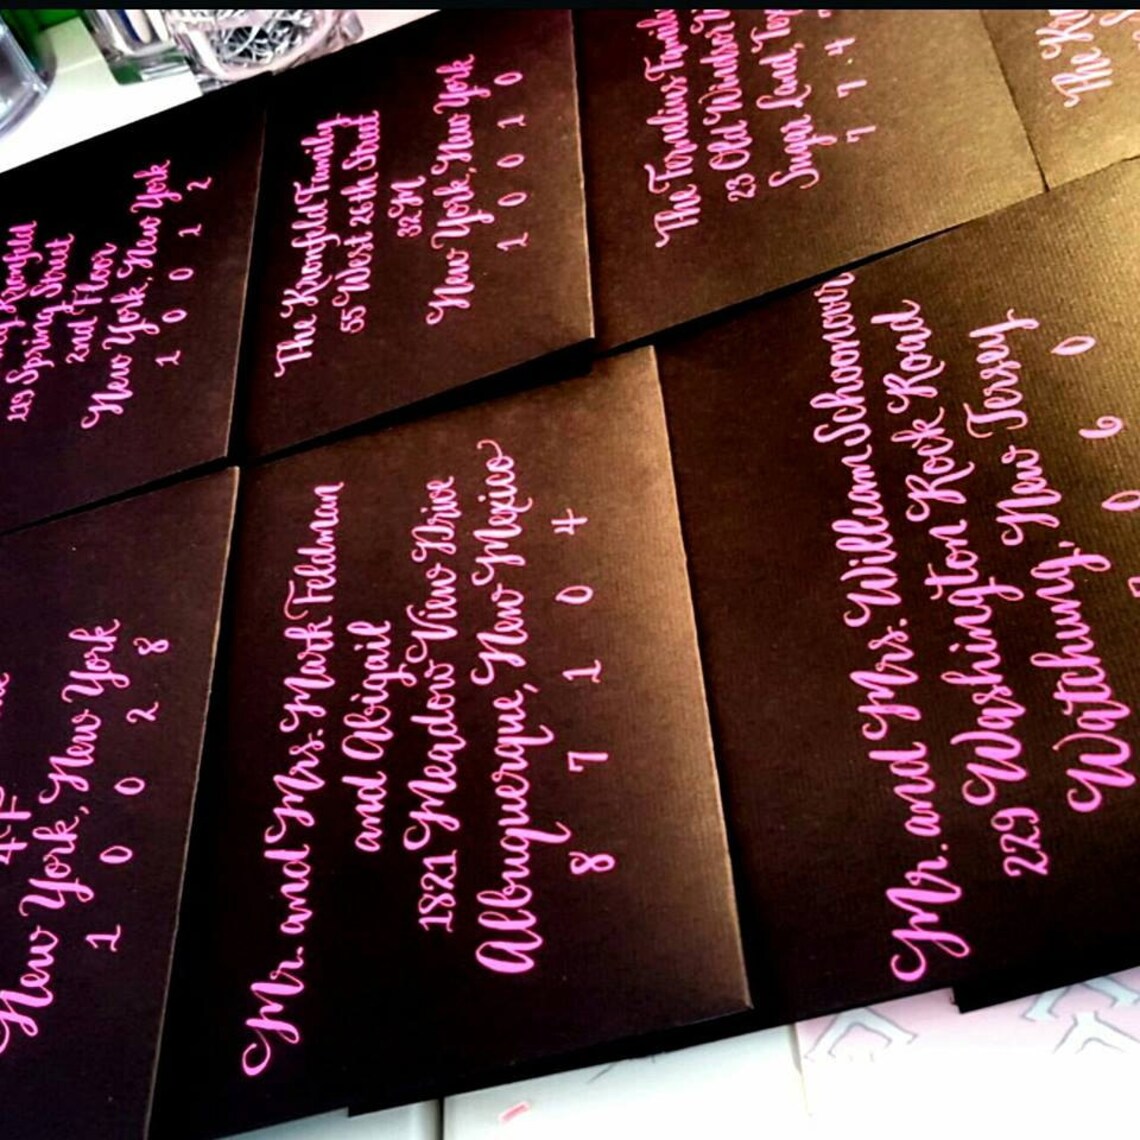 Kronfeld
119 Spring Street
2nd Floor
New York, New York
1 0 0 1 2
The Kronfeld Family
55 West 26th Street
32M
New York, New York
1 0 0 1 0
The Fornelius Family
23 Old Windsor
Sugar Land,
7 7 4
The
4F
New York, New York
1 0 0 2 8
Mr. and Mrs. Mark Feldman
and Abigail
1821 Meadow View Drive
Albuquerque, New Mexico
8 7 1 0 4
Mr. and Mrs. William Schoonover
229 Washington Rock Road
Watchung, New Jersey
7 0 6 0